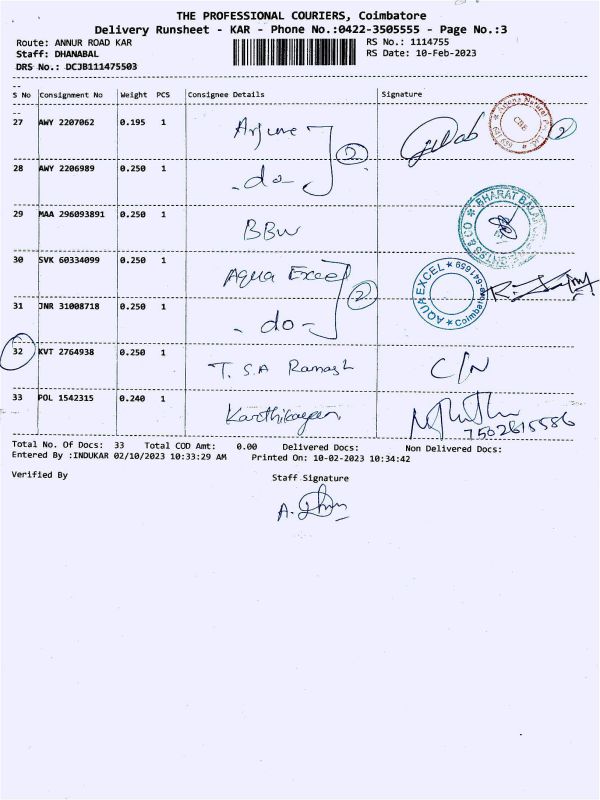 THE PROFESSIONAL COURIERS, Coimbatore
Delivery Runsheet - KAR - Phone No.:0422-3505555 - Page No.:3
Route: ANNUR ROAD KAR RS No.: 1114755
Staff: DHANABAL RS Date: 10-Feb-2023
DRS No.: DCJB111475503
--
S No Consignment No Weight PCS Consignee Details Signature
--
27 AWY 2207062 0.195 1
28 AWY 2206989 0.250 1 - do -
2
2
29 MAA 296093891 0.250 1 BBW
BHARAT
& CO
30 SVK 60334099 0.250 1 Aqua Excel
AQUA EXCEL
Coimbatore
31 JNR 31008718 0.250 1 - do -
2
32 KVT 2764938 0.250 1 T. S.A Ramash C/N
33 POL 1542315 0.240 1 Karthikeyan
7502615586
Total No. Of Docs: 33 Total COD Amt: 0.00 Delivered Docs: Non Delivered Docs:
Entered By :INDUKAR 02/10/2023 10:33:29 AM Printed On: 10-02-2023 10:34:42
Verified By Staff Signature